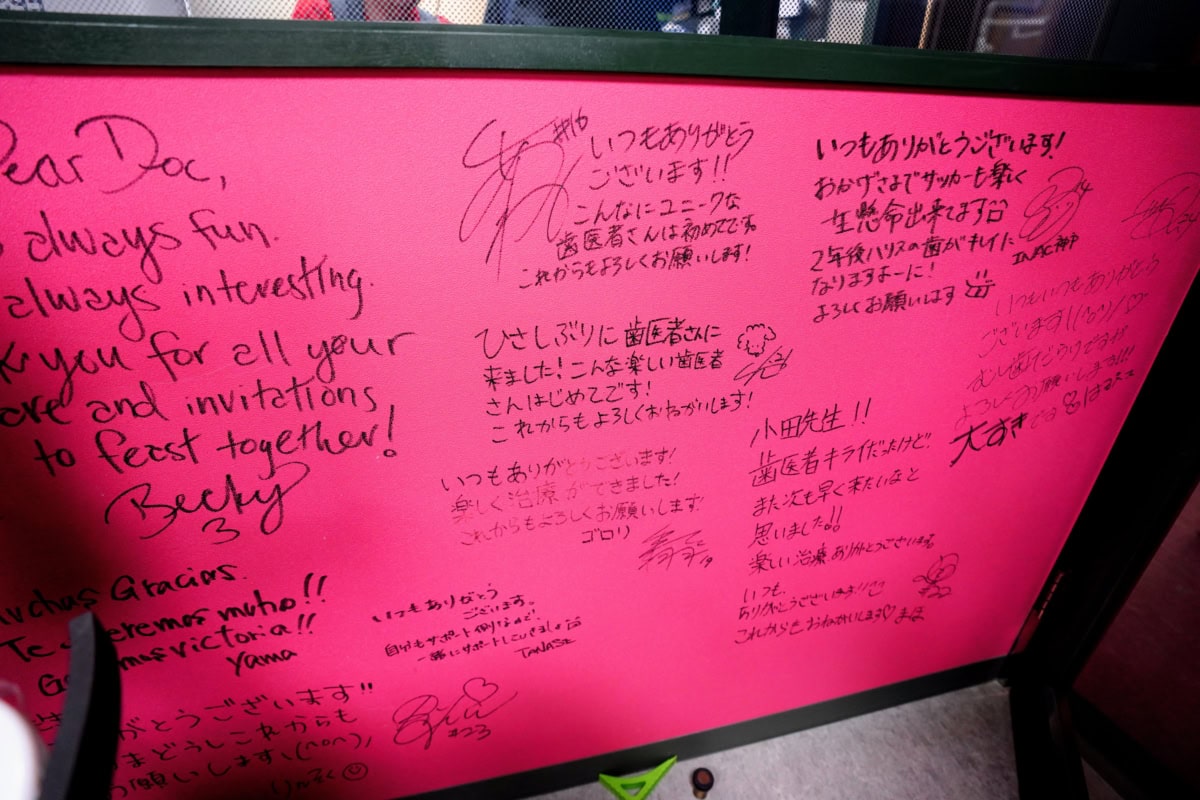 Dear Doc,
always fun.
always interesting.
you for all your
and invitations
to feast together!
Becky
3
Muchas Gracias.
Te queremos mucho!!
victoria!!
Yama
がとうございます!!
これからも
お願いします(^o^)
#16
いつもありがとう
ございます!!
こんなにユニークな
歯医者さんは初めてです。
これからもよろしくお願いします!
ひさしぶりに歯医者さんに
来ました!こんな楽しい歯医者
さんはじめてです!
これからもよろしくおねがいします!
いつもありがとうございます!
楽しく治療ができました!
これからもよろしくお願いします。
ゴロリ
19
いつもありがとう
ございます。
自分もサポート
一緒にサポートしていきましょう
TANASE
#23
いつもありがとうございます!
おかげさまでサッカーも楽しく
一生懸命出来てます
2年後ハリスの歯がキレイに
なりますよーに!
よろしくお願いします
INAC神戸
いつもいつもありがとう
ございます!
むし歯だらけですが
よろしくお願いします!!!
大すきです
小田先生!!
歯医者キライだったけど、
また次も早く来たいなと
思いました!!
楽しい治療、ありがとうございます。
#22
いつも、
ありがとうございます!!
これからもおねがいします♡まほ